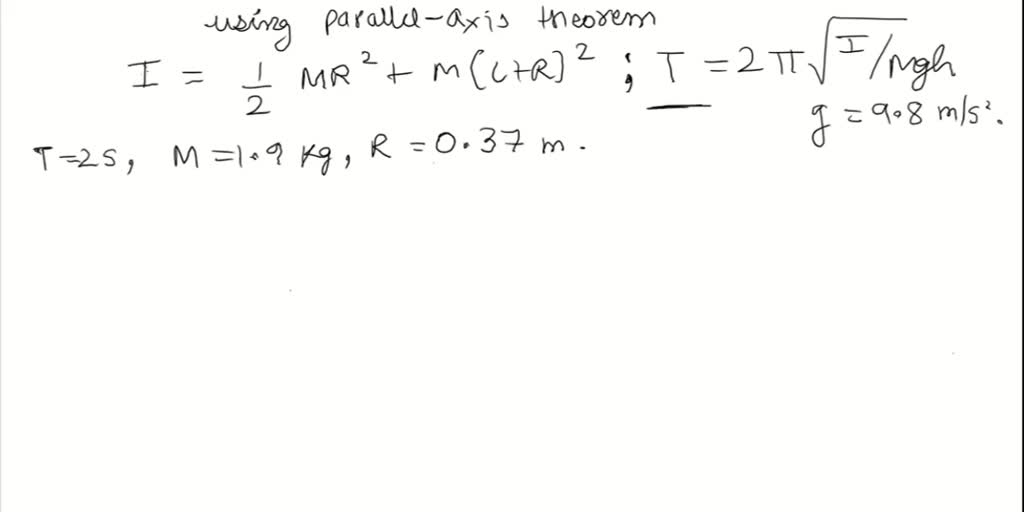 using parallel-axis theorem
I = 1/2 MR² + M(L+R)² ; T = 2π√I/Mgh
g = 9.8 m/s².
T=2s, M=1.9 kg, R=0.37 m.